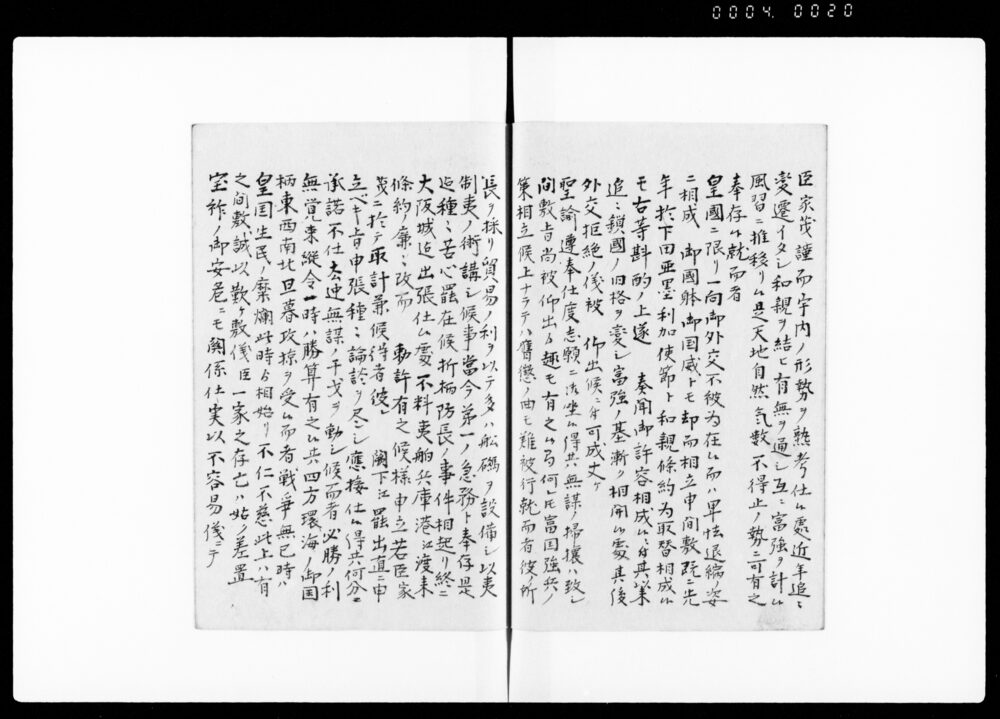 0004 0020
臣家茂謹而宇内ノ形勢ヲ熟考仕ル處近年追ミ
変遷イタシ和親ヲ結ヒ有無ヲ通シ互ミ富強ヲ計ル
風習ニ推移リ候是天地自然ノ気数不得止ノ勢ニ可有之
奉存候就而者
皇國ニ限リ一向御外交不被為在候而ハ卑怯退縮ノ姿
ニ相成 御國躰御國威トモ却而相立申間敷既ニ先
年於下田亜墨利加使節ト和親條約為取替相成候
モ右等斟酌ノ上遂 奏聞御許容相成候ニ付其以来
追ミ鎖國ノ旧格ヲ変シ富強ノ基漸ク相開候處其後
外交拒絶ノ儀被 仰出候ニ付可成丈ケ
聖諭遵奉仕度志願ニ御坐候得共無謀ノ掃攘ハ致シ
間敷旨尚被 仰出候趣モ有之候ニ付何レニモ富国強兵ノ
策相立候上ナラテハ膺懲ノ典モ難被行就而者彼ノ所
長ヲ採リ貿易ノ利ヲ以テ多ハ船礮ヲ設備シ以夷
制夷ノ術講シ候事當今第一ノ急務ト奉存是
迄種ミ苦心罷在候折柄防長ノ事件相起リ終ニ
大阪城迄出張仕候處不料夷舶兵庫港江渡来
條約ノ廉ミ改而 勅許有之候様申立若臣家
茂ニ於テ取計兼候得者彼レ 闕下江罷出直ニ申
立ベキ旨申張種ミ論談ヲ尽シ應接仕候得共何分ニモ
承諾不仕去迚無謀ノ干戈ヲ動シ候而者必勝ノ利
無覚束縦令一時ハ勝算有之候共四方環海ノ御国
柄東西南北旦暮攻掠ヲ受候而者戦争無已時ハ
皇国生民ノ糜爛此時ゟ相始リ不仁不慈此上ハ有
之間敷誠以歎ケ敷儀臣一家之存亡ハ姑ク差置
宝祚ノ御安危ニモ関係仕実以不容易儀ニテ